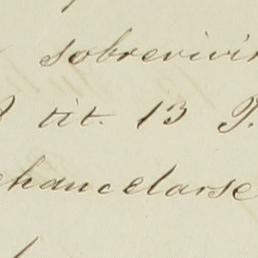 sobrevivir
tit. 13 P.
chancelarse